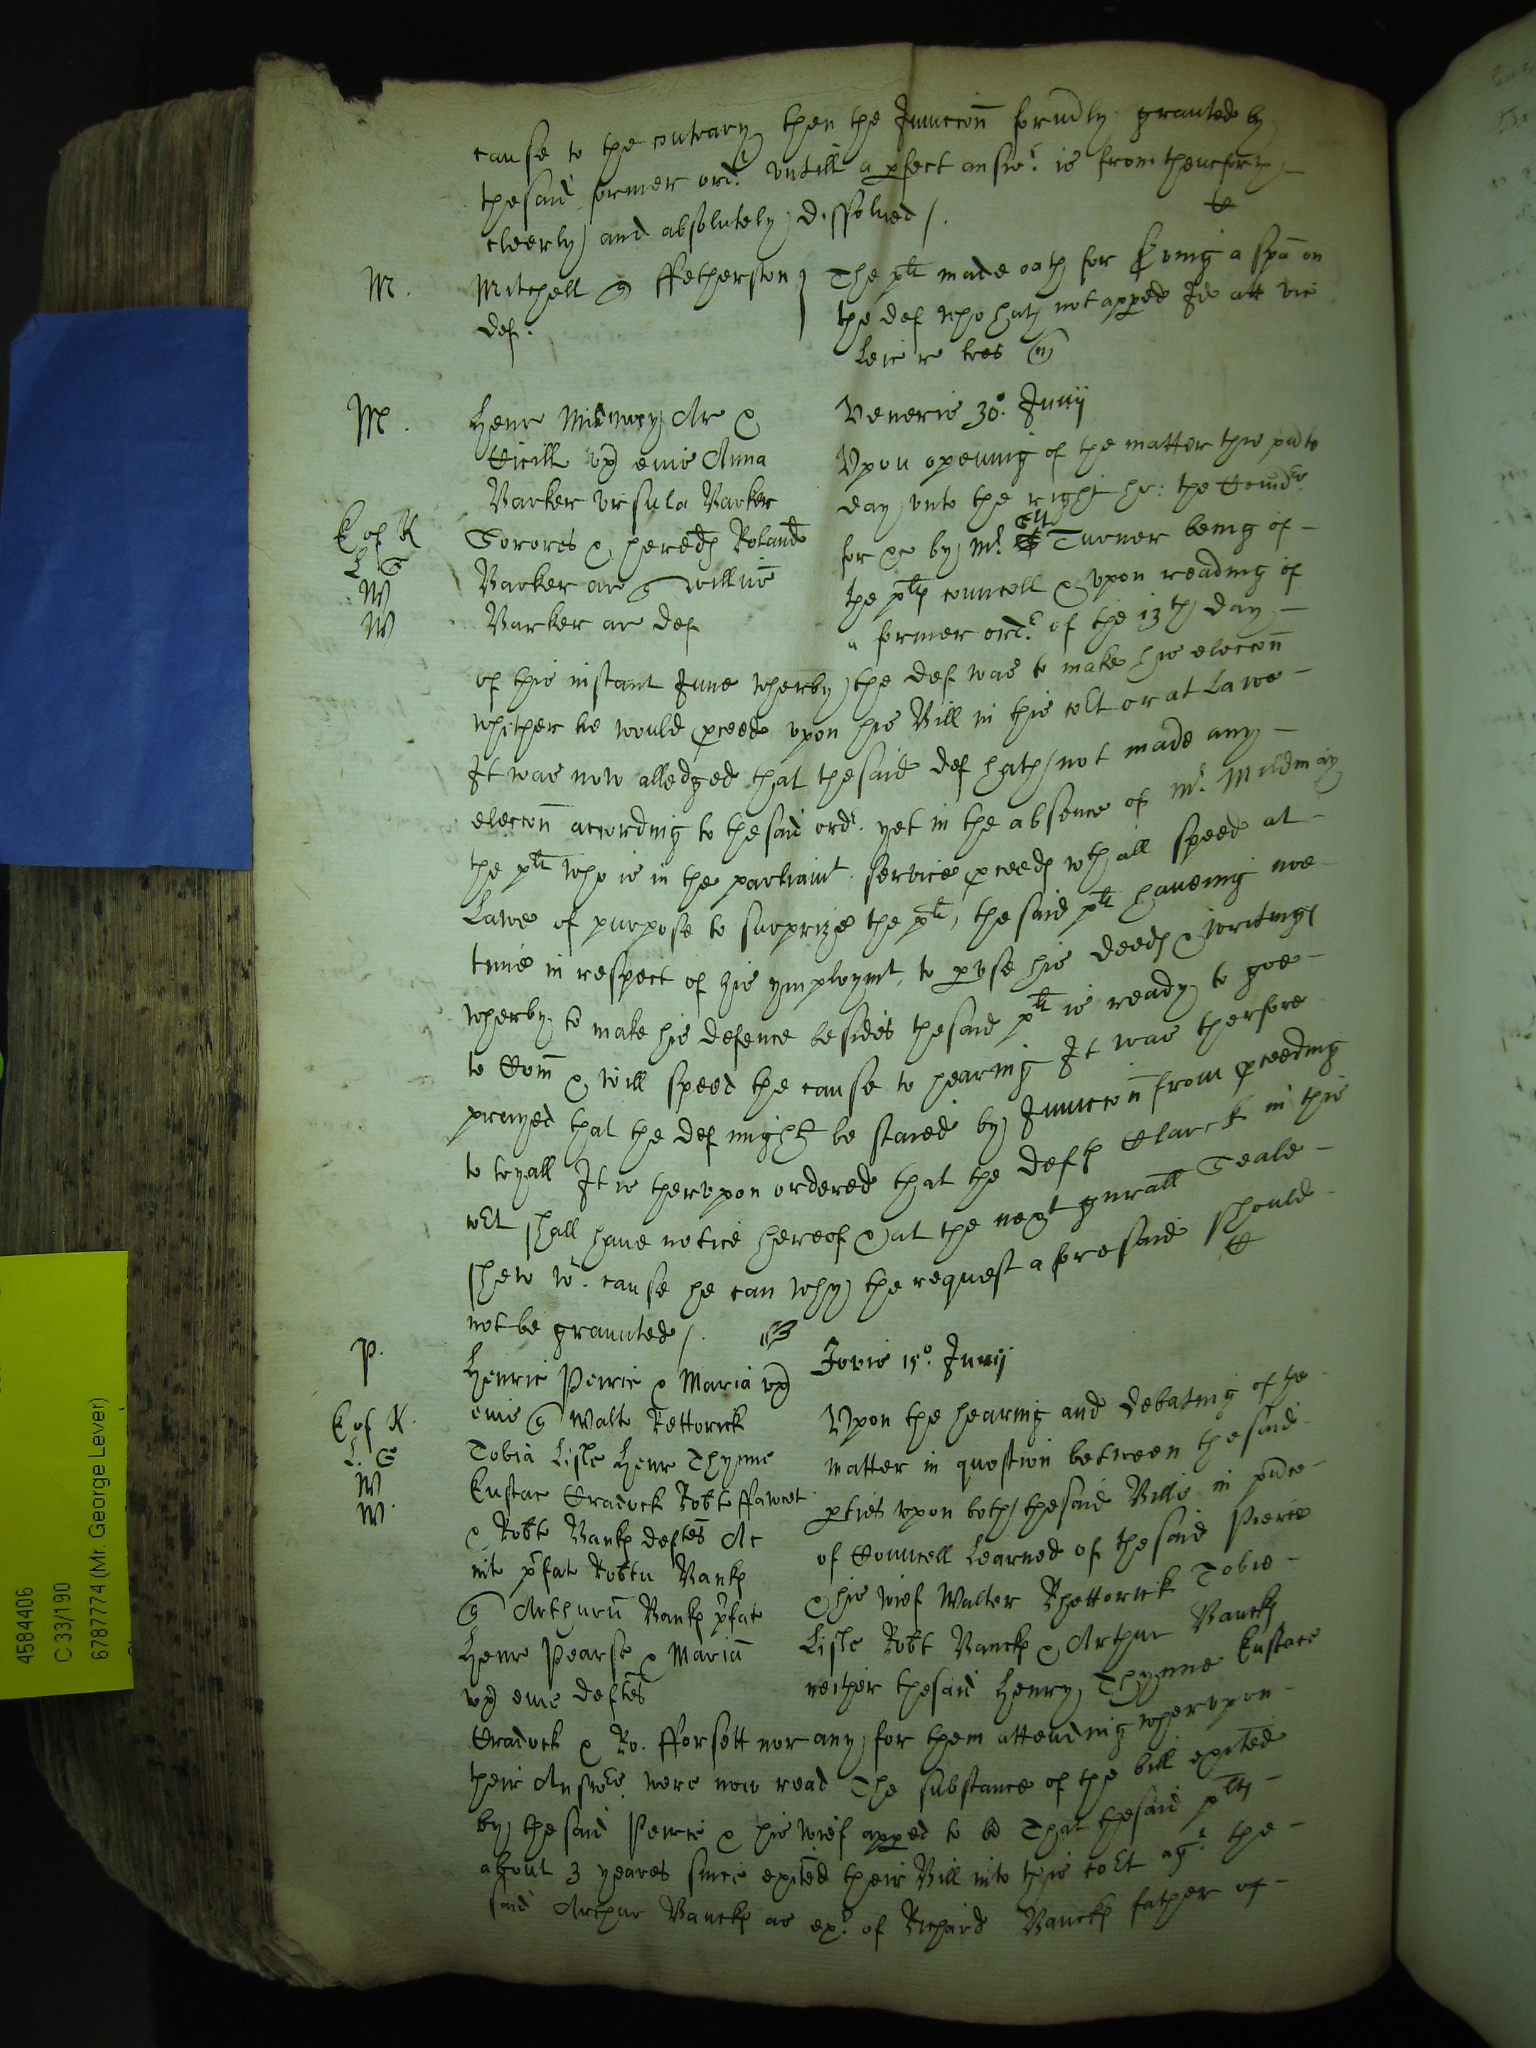 cause to the contrary then the Iniuccon formdly graunted by
the said former ordr. vntill a pfect answr. is from thencforth
cleerly and absolutely dissolued /.
M.
Mitchell
ffetherston
def.
The plt made oath for serving a spa on
the def who hath not appeed Ide att vic
Leic re
M.
Henr Mildmay Ar &
Cicill vx eius Anna
Barker Vrsula Barker
Sorores & hered Roland
Barker ar willm
Barker ar def
E of K
L G
W
W
Veneris 30o. Junij
Vpon openinig of the matter this pnte
day vnto the right ho: the Comrs
for &c by Mr. Turner being of
the plts councell & vpon reading of
a former ordr. of the 13th day
of this instant June wherby the def was to make his eleccon
whither he would pceed vpon his Bill in this cort or at Lawe
It was now alledged that the said def hath not made any
eleccon according to the said ordr. yet in the absence of Mr. Mildmay
the plt who is in the parliamt. service pceeds wth all speed at
Lawe of purpose to surprize the plt, the said plt haveing noe
time in respect of his ymploymt. to pvse his deeds & writings
wherby to make his defence besides the said plt is ready to goe
to Com & will speed the cause to hearing It was therfore
prayed that the def might be staied by Iniuccon from pceeding
to tryall It is thervpon ordered that the defts Clarck in this
cort shall have notice hereof & at the next gnrall Seale
shew w. cause he can why the request aforesaid should
not be graunted /.
P.
Henric Peirce & Maria vx
eius Walto Rettorick
Tobia Lisle Henr Thynne
Eustac Cradock Robto ffawcet
& Robto Banks deftes Ac
inte pfat Robtu Banks
Arthuru Banks pfat
Henr Pearse & Maria
vx eius deftes
E of K.
L. G
W
W.
Jovis 15o. Junij
Vpon the hearing and debating of the
matter in question between the said
pties vpon both the said Bills in pnce
of Councell Learned of the said Pierce
& his wief Walter Rhettorick Tobie
Lisle Robt Bancks & Arthur Bancks
neither the said Henry Thynne Eustace
Cradock & Ro. fforsett nor any for them attending wherupon
their Answrs. were now read The substance of the bill exited
by the said Peirce & his wief appeed to be That the said plts
about 3 yeares since exited their Bill into this cort agt. the
said Arthur Bancks as exr. of Richard Bancks father of
4584406
C 33/190
6787774 (Mr. George Lever)